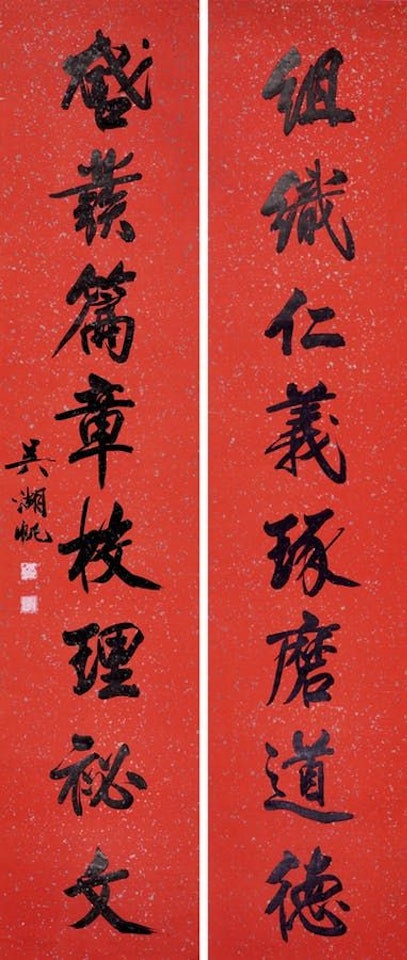 組織仁義琢磨道德
啟發篇章校理祕文
吳湖帆